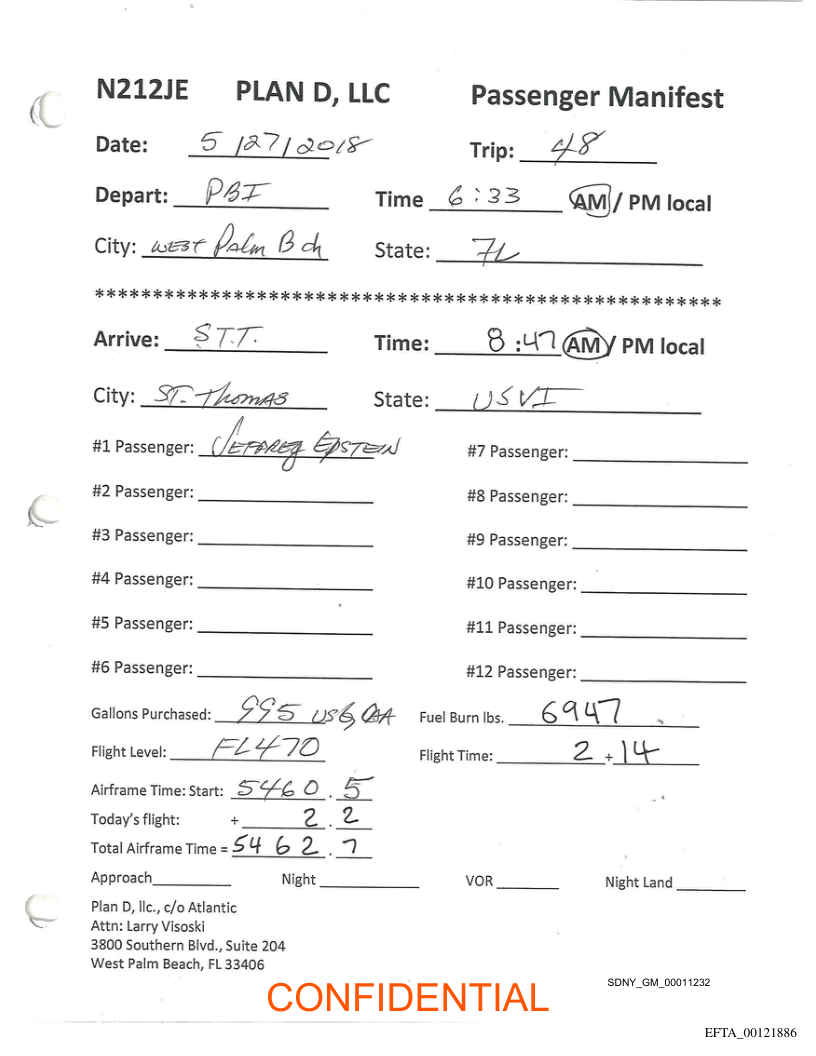 N212JE PLAN D, LLC Passenger Manifest
Date: 5/27/2018 Trip: 48
Depart: PBI Time 6:33 AM / PM local
City: WEST Palm Bch State: FL
******************************************************
Arrive: S.T.T. Time: 8:47 AM / PM local
City: ST. Thomas State: USVI
#1 Passenger: JEFFREY EPSTEIN #7 Passenger:
#2 Passenger: #8 Passenger:
#3 Passenger: #9 Passenger:
#4 Passenger: #10 Passenger:
#5 Passenger: #11 Passenger:
#6 Passenger: #12 Passenger:
Gallons Purchased: 995 USG, Fuel Burn lbs. 6947
Flight Level: FL470 Flight Time: 2 + 14
Airframe Time: Start: 5460.5
Today's flight: + 2.2
Total Airframe Time = 5462.7
Approach Night VOR Night Land
Plan D, llc., c/o Atlantic
Attn: Larry Visoski
3800 Southern Blvd., Suite 204
West Palm Beach, FL 33406
SDNY_GM_00011232
CONFIDENTIAL
EFTA_00121886